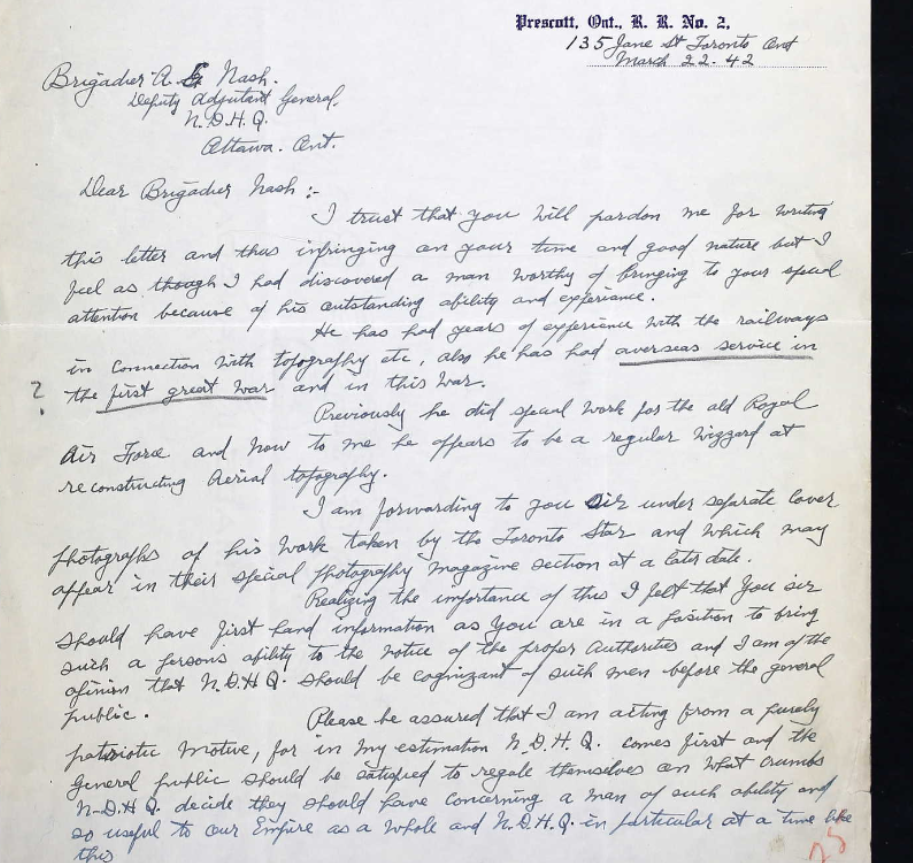 Prescott, Ont., R. R. No. 2.
135 Jane St Toronto Ont
March 22-42
Brigadier A. E Nash.
Deputy Adjutant General,
N.D.H.Q.
Ottawa. Ont.
Dear Brigadier Nash :-
I trust that you will pardon me for writing
this letter and thus infringing on your time and good nature but I
feel as though I had discovered a man worthy of bringing to your special
attention because of his outstanding ability and experience.
He has had years of experience with the railways
in connection with topography etc, also he has had overseas service in
? the first great war and in this war.
Previously he did special work for the old Royal
Air Force and now to me he appears to be a regular wizzard at
reconstructing Aerial topography.
I am forwarding to you sir under separate cover
photographs of his work taken by the Toronto Star and which may
appear in their special photography magazine section at a later date.
Realizing the importance of this I felt that you sir
should have first hand information as you are in a position to bring
such a persons ability to the notice of the proper authorities and I am of the
opinion that N.D.H.Q. should be cognizant of such men before the general
public.
Please be assured that I am acting from a purely
patriotic motive, for in my estimation N.D.H.Q. comes first and the
General public should be satisfied to regale themselves on what crumbs
N-D-H Q. decide they should have concerning a man of such ability and
so useful to our Empire as a whole and N.D.H.Q. in particular at a time like
this
25